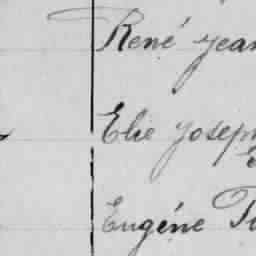 René Jean
Elie Joseph
Eugéne